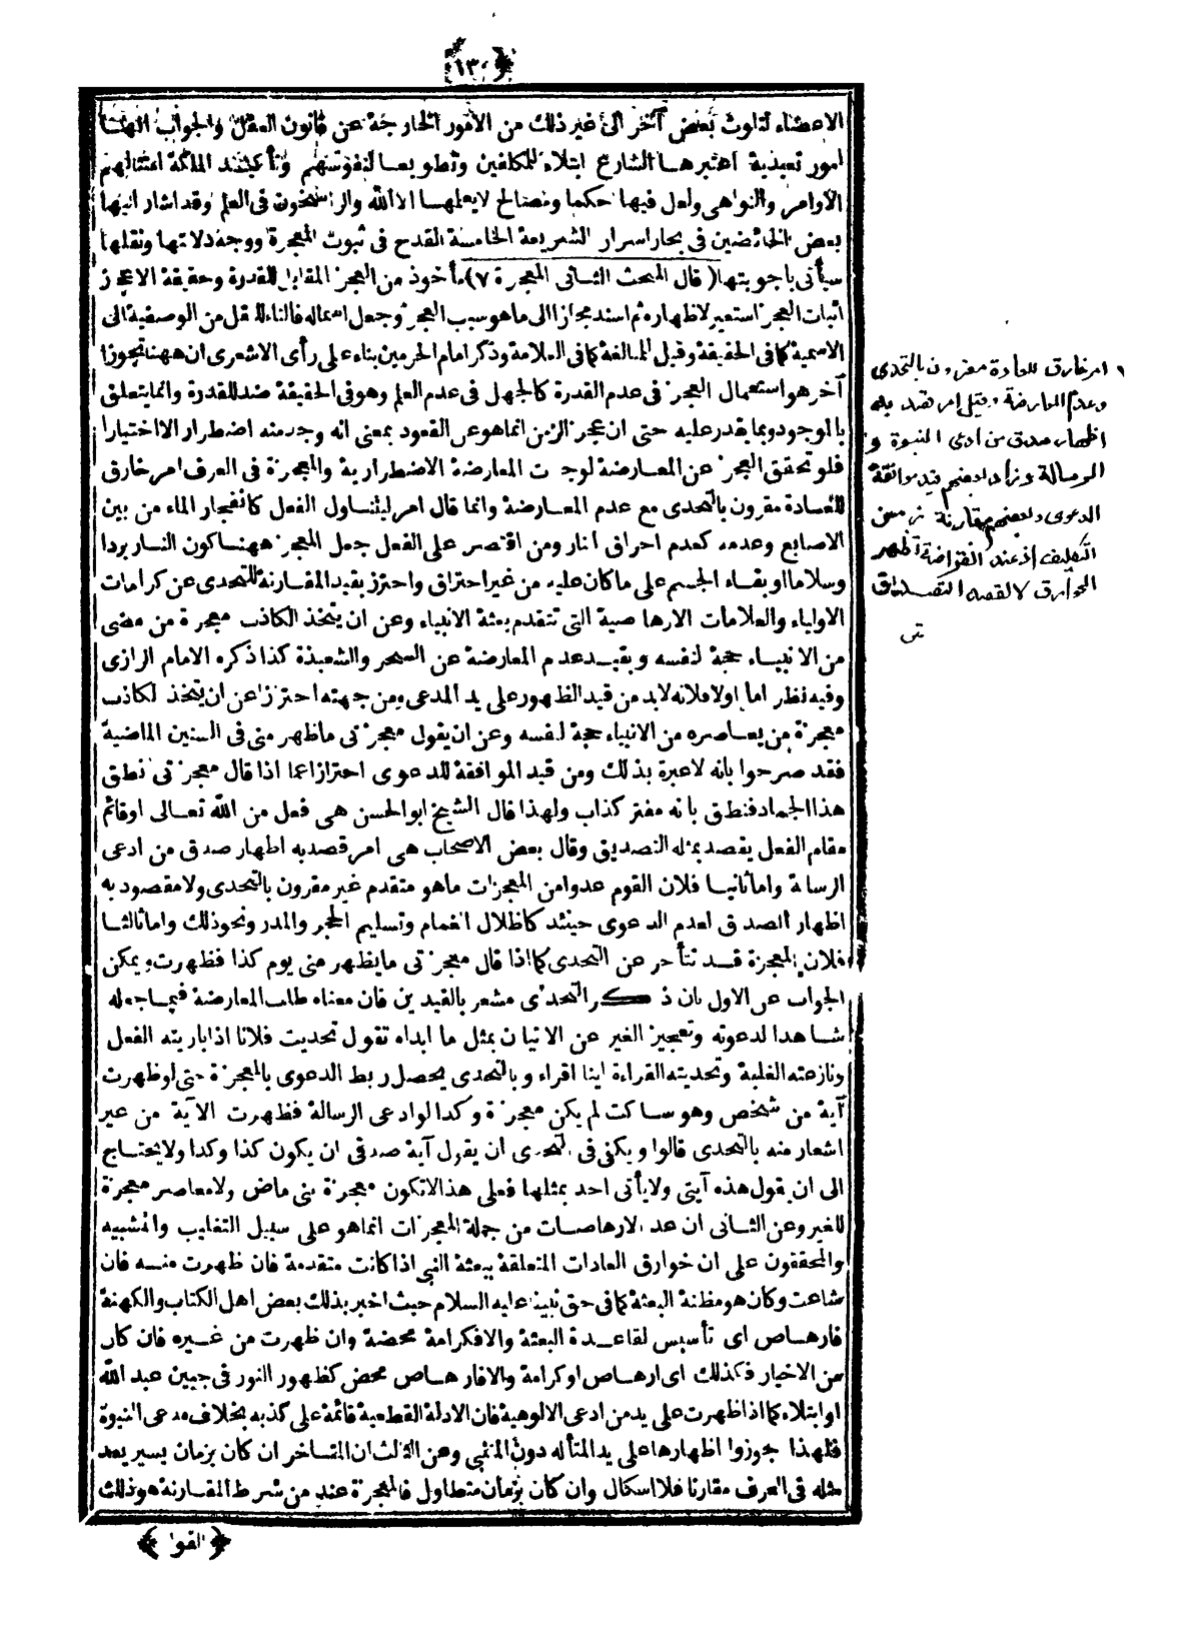 ﴿١٣٠﴾
الاعضاء لتلوث بعض آخر الى غير ذلك من الامور الخارجة عن قانون العقل والجواب انها
امور تعبدية اعتبرها الشارع ابتلاء للمكلفين وتطويعا لنفوسهم وتأكيدا لملكة امتثالهم
الاوامر والنواهى ولعل فيها حكما ومصالح لا يعلمها الا الله والراسخون فى العلم وقد اشار اليها
بعض الخائضين فى بحار اسرار الشريعة الخامسة القدح فى ثبوت المعجزة ووجه دلالتها ونقلها
سيأتى باجوبتها ( قال المبحث الثانى المعجزة ٧) مأخوذ من العجز المقابل للقدرة وحقيقة الاعجاز
اثبات العجز استعير لاظهاره ثم اسند مجازا الى ما هو سبب العجز وجعل اسماله فالتاء للنقل من الوصفية الى
الاسمية كما فى الحقيقة وقيل للمبالغة كما فى العلامة وذكر امام الحرمين بناء على رأى الاشعرى ان ههنا تجوزا
آخر هو استعمال العجز فى عدم القدرة كالجهل فى عدم العلم وهو فى الحقيقة ضد للقدرة وانما يتعلق
بالموجود وبما يقدر عليه حتى ان عجز الزمن انما هو عن القعود بمعنى انه وجد منه اضطرارا لا اختيارا
فلو تحقق العجز عن المعارضة لوجدت المعارضة الاضطرارية والمعجزة فى العرف امر خارق
للعادة مقرون بالتحدى مع عدم المعارضة وانما قال امر ليتناول الفعل كانفجار الماء من بين
الاصابع وعدمه كعدم احراق النار ومن اقتصر على الفعل جعل المعجز ههنا كون النار بردا
وسلاما او بقاء الجسم على ما كان عليه من غير احتراق واحترز بقيد المقارنة للتحدى عن كرامات
الاولياء والعلامات الارهاصية التى تتقدم بعثة الانبياء وعن ان يتخذ الكاذب معجزة من مضى
من الانبياء حجة لنفسه وبقيد عدم المعارضة عن السحر والشعبذة كذا ذكره الامام الرازى
وفيه نظر اما اولا فلانه لا بد من قيد الظهور على يد المدعى ومن جهته احترازا عن ان يتخذ الكاذب
معجزة من يعاصره من الانبياء حجة لنفسه وعن ان يقول معجزتى ما ظهر منى فى السنين الماضية
فقد صرحوا بانه لا عبرة بذلك ومن قيد الموافقة للدعوى احترازا عما اذا قال معجزتى نطق
هذا الجماد فنطق بانه مفتر كذاب ولهذا قال الشيخ ابو الحسن هى فعل من الله تعالى او قائم
مقام الفعل يقصد بمثله التصديق وقال بعض الاصحاب هى امر قصد به اظهار صدق من ادعى
الرسالة واما ثانيا فلان القوم عدوا من المعجزات ما هو متقدم غير مقرون بالتحدى ولا مقصود به
اظهار الصدق لعدم الدعوى حينئذ كاظلال الغمام وتسليم الحجر والمدر ونحو ذلك واما ثالثا
فلان المعجزة قد تتأخر عن التحدى كما اذا قال معجزتى ما يظهر منى يوم كذا فظهرت ويمكن
الجواب عن الاول بان ذكر التحدى مشعر بالقيدين فان معناه طلب المعارضة فيما جعله
شاهدا لدعوته وتعجيز الغير عن الاتيان بمثل ما ابداه تقول تحديت فلانا اذا باريته الفعل
ونازعته الغلبة وتحديته القراءة اينا اقرأ وبالتحدى يحصل ربط الدعوى بالمعجزة حتى لو ظهرت
آية من شخص وهو ساكت لم يكن معجزة وكذا لو ادعى الرسالة فظهرت الآية من غير
اشعار منه بالتحدى قالوا ويكفى فى التحدى ان يقول آية صدقى ان يكون كذا وكذا ولا يحتاج
الى ان يقول هذه آيتى ولا يأتى احد بمثلها فعلى هذا لا تكون معجزة نبى ماض ولا معاصر معجزة
للغير وعن الثانى ان عد الارهاصات من جملة المعجزات انما هو على سبيل التغليب والتشبيه
والمحققون على ان خوارق العادات المتعلقة ببعثة النبى اذا كانت متقدمة فان ظهرت منه فان
شاعت وكان هو مظنة البعثة كما فى حق نبينا عليه السلام حيث اخبر بذلك بعض اهل الكتاب والكهنة
فارهاص اى تأسيس لقاعدة البعثة والا فكرامة محضة وان ظهرت من غيره فان كان
من الاخيار فكذلك اى ارهاص او كرامة والا فارهاص محض كظهور النور فى جبين عبد الله
او ابتلاء كما اذا ظهرت على يد من ادعى الالوهية فان الادلة القطعية قائمة على كذبه بخلاف مدعى النبوة
فلهذا جوزوا اظهارها على يد المتأله دون المتنبى وعن الثالث ان المتأخر ان كان بزمان يسير يعد
مثله فى العرف مقارنا فلا اشكال وان كان بزمان متطاول فالمعجزة عند من شرط المقارنة هو ذلك
﴿القو﴾
٧ امر خارق للعادة مقرون بالتحدى
وعدم المعارضة وقيل امر قصد به
اظهار صدق من ادعى النبوة و
الرسالة وزاد بعضهم قيد موافقة
الدعوى وبعضهم مقارنة زمن
التكليف اذ عند انقراضه تظهر
الخوارق لا لقصد التصديق